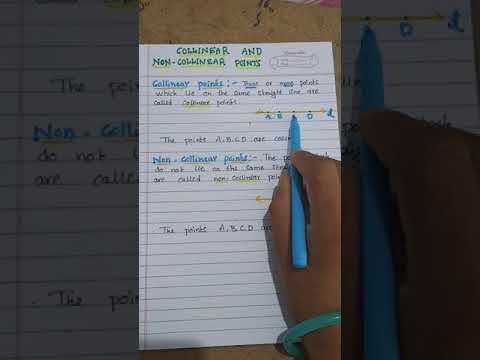 COLLINEAR AND
NON-COLLINEAR POINTS
Collinear points:- Three or more points
which lie on the same straight line are
called collinear points.
A B D l
The points A, B, C, D are
Non-Collinear points:- The
do not lie on the same
are called non-collinear
The points A, B, C, D are